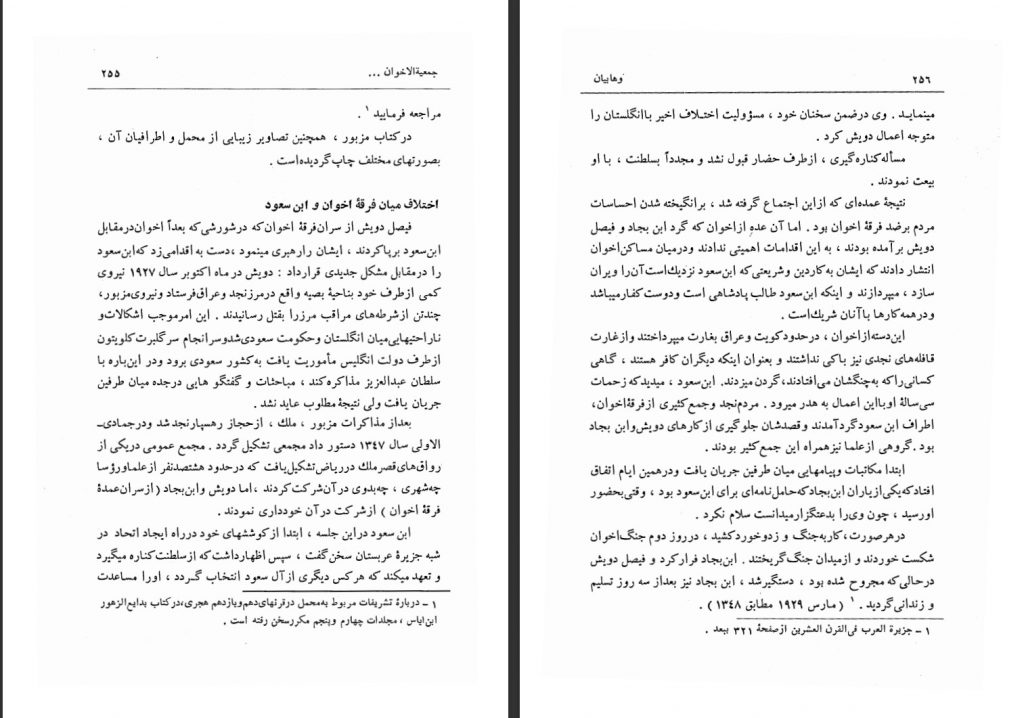 جمعیة‌الاخوان ...
۲۵۵
مراجعه فرمایید ۱ .
درکتاب مزبور ، همچنین تصاویر زیبایی از محمل و اطرافیان آن ،
بصورتهای مختلف چاپ گردیده‌است .
اختلاف میان فرقهٔ اخوان و ابن سعود
فیصل دویش از سران‌فرقهٔ اخوان‌که درشورشی‌که بعداً اخوان‌درمقابل
ابن‌سعود برپاکردند ، ایشان رارهبری مینمود ،دست به اقدامی‌زد که‌ابن‌سعود
را درمقابل مشکل جدیدی قرارداد : دویش درماه اکتوبر سال ۱۹۲۷ نیروی
کمی ازطرف خود بناحیهٔ بصیه واقع درمرزنجد وعراق‌فرستاد ونیروی‌مزبور،
چندتن ازشرطه‌های مراقب مرزرا بقتل رسانیدند . این امرموجب اشکالات‌و
ناراحتیهایی‌میان انگلستان وحکومت سعودی‌شدوسرانجام سرگلبرت کلویتون
ازطرف دولت انگلیس مأموریت یافت به‌کشور سعودی برود ودر این‌باره با
سلطان عبدالعزیز مذاکره‌کند ، مباحثات و گفتگو هایی درجده میان طرفین
جریان یافت ولی نتیجهٔ مطلوب عاید نشد .
بعداز مذاکرات مزبور ، ملك ، ازحجاز رهسپارنجد شد ودرجمادی‌ـ
الاولی سال ۱۳۴۷ دستور داد مجمعی تشکیل گردد . مجمع عمومی دریکی از
رواق‌های‌قصرملك درریاض‌تشکیل‌یافت که درحدود هشتصدنفر ازعلماورؤسا
چه‌شهری ، چه‌بدوی درآن‌شرکت‌کردند ،اما دویش وابن‌بجاد (ازسران‌عمدهٔ
فرقهٔ اخوان ) ازشرکت درآن خودداری نمودند .
ابن سعود دراین جلسه ، ابتدا ازکوششهای خود درراه ایجاد اتحاد در
شبه جزیرهٔ عربستان سخن‌گفت ، سپس اظهارداشت‌که ازسلطنت‌کناره میگیرد
و تعهد میکند که هرکس دیگری ازآل سعود انتخاب گردد ، اورا مساعدت
۱ ــ دربارهٔ تشریفات مربوط به‌محمل درقرنهای‌دهم‌ویازدهم هجری،درکتاب بدایع‌الزهور
ابن‌ایاس ، مجلدات چهارم وپنجم مکررسخن رفته است .
وهابیان
۲۵۶
مینمایـد . وی درضمن سخنان خود ، مسؤولیت اختـلاف اخیر باانگلستان را
متوجه اعمال دویش کرد .
مسأله‌کناره‌گیری ، ازطرف حضار قبول نشد و مجدداً بسلطنت ، با او
بیعت نمودند .
نتیجهٔ عمده‌ای که ازاین اجتماع گرفته شد ، برانگیخته شدن احساسات
مردم برضد فرقهٔ اخوان بود . اما آن عده ازاخوان که گرد ابن بجاد و فیصل
دویش برآمده بودند ، به این اقدامات اهمیتی ندادند ودرمیان مساکن‌اخوان
انتشار دادند که ایشان به‌کاردین وشریعتی‌که ابن‌سعود نزدیك‌است‌آن‌را ویران
سازد ، میپردازند و اینکه ابن‌سعود طالب پادشاهی است ودوست کفارمیباشد
ودرهمه‌کارها باآنان شریك‌است .
این‌دسته‌ازاخوان ، درحدودکویت وعراق بغارت میپرداختند وازغارت
قافله‌های نجدی نیز باکی نداشتند و بعنوان اینکه دیگران کافر هستند ، گاهی
کسانی‌راکه به‌چنگشان می‌افتادند،گردن میزدند. ابن‌سعود ، میدیدکه زحمات
سی‌سالهٔ اوبااین اعمال به هدر میرود . مردم‌نجد وجمع‌کثیری ازفرقهٔ‌اخوان،
اطراف ابن سعودگردآمدند وقصدشان جلوگیری ازکارهای دویش‌وابن بجاد
بود .گروهی ازعلما نیزهمراه این جمع‌کثیر بودند .
ابتدا مکاتبات وپیامهایی میان طرفین جریان یافت ودرهمین ایام اتفاق
افتادکه‌یکی‌ازیاران ابن‌بجادکه‌حامل‌نامه‌ای برای ابن‌سعود بود ، وقتی‌بحضور
اورسید ، چون وی‌را بدعتگزارمیدانست سلام نکرد .
درهرصورت،کاربه‌جنگ و زدوخوردکشید ، درروز دوم جنگ‌اخوان
شکست خوردند و ازمیدان جنگ‌گریختند . ابن‌بجاد فرارکرد و فیصل دویش
درحالی‌که مجروح شده بود ، دستگیرشد ، ابن بجاد نیز بعداز سه روز تسلیم
و زندانی‌گردید . ۱ ( مارس ۱۹۲۹ مطابق ۱۳۴۸ ) .
۱ ــ جزیرة العرب فی‌القرن العشرین ازصفحهٔ ۳۲۱ ببعد .